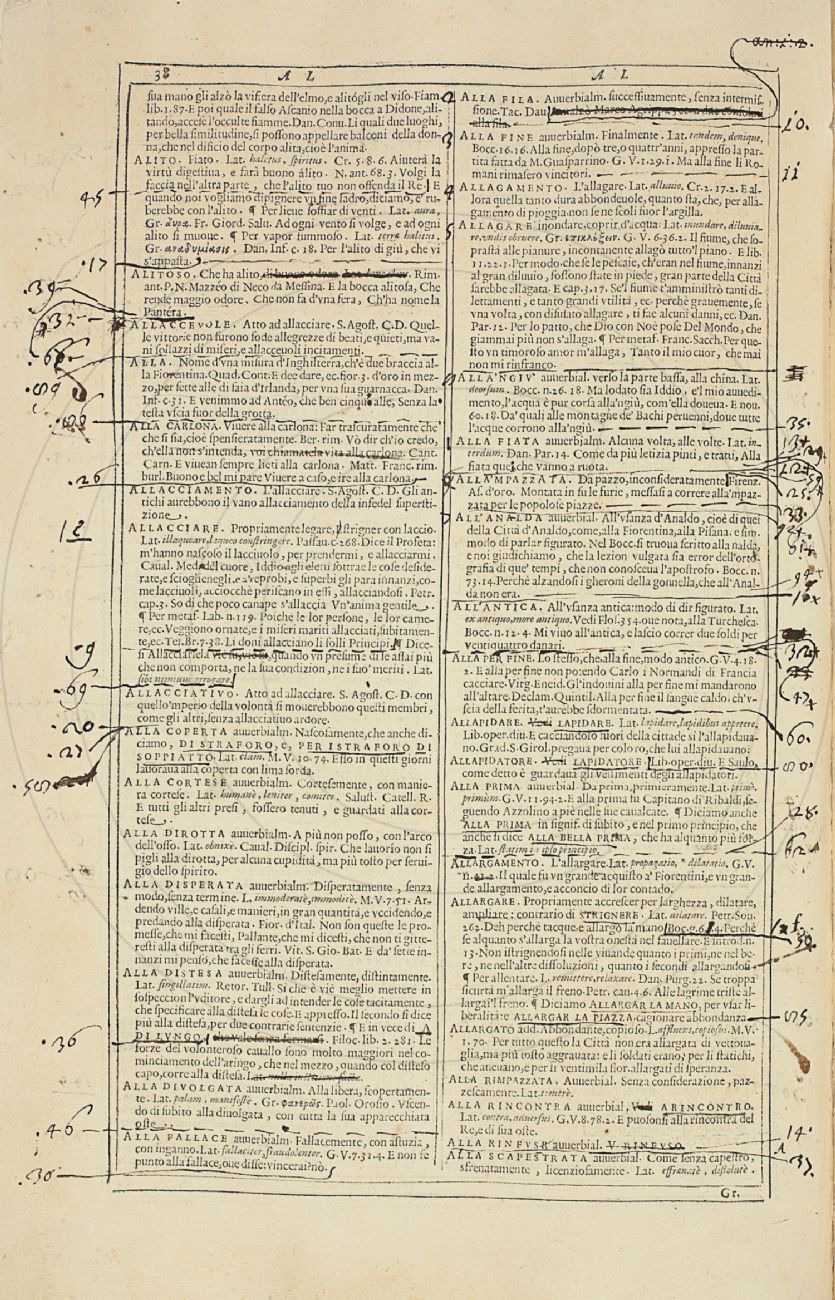 an:i:2.
38 A L
A L
sua mano gli alzò la visiera dell'elmo, e alitógli nel viso. Fiam.
lib. 1. 87. E poi quale il falso Ascanio nella bocca a Didone, ali-
tando, accese l'occulte fiamme. Dan. Conu. Li quali due luoghi,
per bella similitudine, si possono appellare balconi della don-
na, che nel dificio del corpo alita, cioè l'anima.
ALITO. Fiato. Lat. halitus, spiritus. Cr. 5. 8. 6. Aiuterà la
virtù digestiua, e farà buono álito. N. ant. 68. 3. Volgi la
faccia nell'altra parte, che l'alito tuo non offenda il Re. E
quando noi vogliamo dipignere vn fine ladro, diciamo, e' ru-
berebbe con l'alito. ¶ Per lieue soffiar di venti. Lat. aura,
Gr. ἄυρα. Fr. Giord. Salu. Ad ogni vento si volge, e ad ogni
alito si muoue. ¶ Per vapor fummoso. Lat. terrae halitus.
Gr. Dan. Inf. c. 18. Per l'alito di giù, che vi
s'appasta.
ALITOSO. Che ha alito, di buono odore. Rim.
ant. P. N. Mazzéo di Neco da Messina. E la bocca alitosa, Che
rende maggio odore, Che non fa d'vna fera, Ch'ha nome la
Pantéra.
ALLACCEVOLE. Atto ad allacciare. S. Agost. C. D. Quel-
le vittorie non furono sode allegrezze di beati, e quieti, ma va-
ni sollazzi di miseri, e allacceuoli incitamenti.
ALLA. Nome d'vna misura d'Inghilterra, ch'è due braccia al-
la Fiorentina. Quad. Cont. E dee dare, ec. fior. 3. d'oro in mez-
zo, per sette alle di saia d'Irlanda, per vna sua guarnacca. Dan.
Inf. c. 31. E venimmo ad Antéo, che ben cinque alle, Senza la
testa vscia fuor della grotta.
ALLA CARLONA. Viuere alla carlona: Far trascuratamente che
che si sia, cioè spensieratamente. Ber. rim. Vò dir ch'io credo,
ch'ella non s'intenda, voi chiamate la vita alla carlona. Cant.
Carn. E viuean sempre lieti alla carlona. Matt. Franc. rim.
burl. Buono e bel mi pare Viuere a caso, e ire alla carlona.
ALLACCIAMENTO. L'allacciare. S. Agost. C. D. Gli an-
tichi aurebbono il vano allacciamento della infedel supersti-
zione.
ALLACCIARE. Propriamente legare, strigner con laccio.
Lat. illaqueare, laqueo constringere. Passau. c. 268. Dice il Profeta:
m'hanno nascoso il lacciuolo, per prendermi, e allacciarmi.
Caual. Med. del cuore, Iddio agli eletti sottrae le cose deside-
rate, e sciogliénegli, e a' reprobi, e superbi gli para innanzi, co-
me lacciuoli, acciocchè periscano in essi, allacciandosi. Petr.
cap. 3. So di che poco canape s'allaccia Vn'anima gentile.
¶ Per metaf. Lab. n. 119. Poichè le lor persone, le lor came-
re, ec. Veggiono ornate, e i miseri mariti allacciati, subitamen-
te, ec. Tes. Br. 7. 38. Li doni allacciano li folli Principi. ¶ Dice-
si Allacciarsela quando vn presume di se assai più
che non comporta, ne la sua condizion, ne i suo' meriti. Lat.
sibi nimium arrogare.
ALLACCIATIVO. Atto ad allacciare. S. Agost. C. D. con
quello'mperio della volontà si mouerebbono questi membri,
come gli altri, senza allacciatiuo ardore.
ALLA COPERTA auuerbialm. Nascosamente, che anche di-
ciamo, DI STRAFORO, e, PER ISTRAFORO DI
SOPPIATTO. Lat. clam. M. V. 10. 74. Esso in questi giorni
lauoraua alla coperta con lima sorda.
ALLA CORTESE auuerbialm. Cortesemente, con manie-
ra cortese. Lat. humanè, leniter, comiter. Salust. Catell. R.
E tutti gli altri presi, fossero tenuti, e guardati alla cor-
tese.
ALLA DIROTTA auuerbialm. A più non posso, con l'arco
dell'osso. Lat. obnixè. Caual. Discipl. spir. Che lauorio non si
pigli alla dirotta, per alcuna cupidità, ma più tosto per serui-
gio dello spirito.
ALLA DISPERATA auuerbialm. Disperatamente, senza
modo, senza termine. L. immoderatè, immodicè. M. V. 7. 51. Ar-
dendo ville, e casali, e manieri, in gran quantità, e vccidendo, e
predando alla disperata. Fior. d'Ital. Non son queste le pro-
messe, che mi facesti, Pallante, che mi dicesti, che non ti gitte-
resti alla disperata tra gli ferri. Vit. S. Gio. Bat. E da' sette in-
nanzi mi penso, che facesse alla disperata.
ALLA DISTESA auuerbialm. Distesamente, distintamente.
Lat. singillatim. Retor. Tull. Si che è vié meglio mettere in
sospeccion l'vditore, e dargli ad intender le cose tacitamente,
che specificare alla distesa le cose. E appresso. Il secondo si dice
più alla distesa, per due contrarie sentenzie. ¶ E in vece di A
DI LVNGO, Filoc. lib. 2. 281. Le
forze del volonteroso cauallo sono molto maggiori nel co-
minciamento dell'aringo, che nel mezzo, quando col disteso
capo, corre alla distesa.
ALLA DIVOLGATA auuerbialm. Alla libera, scopertamen-
te. Lat. palam, manifestè. Gr. φανερῶς. Paol. Orosio. Vscen-
do di subito alla diuolgata, con tutta la sua apparecchiata
oste.
ALLA FALLACE auuerbialm. Fallacemente, con astuzia,
con inganno. Lat. fallaciter, fraudolenter. G. V. 7. 31. 4. E non se
punto alla fallace, oue disse: vincerai nò.
ALLA FILA. Auuerbialm. successiuamente, senza intermis-
sione. Tac. Dau.
alla fila.
ALLA FINE auuerbialm. Finalmente. Lat. tandem, denique.
Bocc. 16. 16. Alla fine, dopò tre, o quattr'anni, appresso la par-
tita fatta da M. Guasparrino. G. V. 1. 29. 1. Ma alla fine li Ro-
mani rimasero vincitori.
ALLAGAMENTO. L'allagare. Lat. alluuio. Cr. 2. 17. 2. E al-
lora quella tanto dura abbondeuole, quanto sta, che, per alla-
gamento di pioggia non se ne scoli fuor l'argilla.
ALLAGARE inondare, coprir d'acqua. Lat. inundare, diluuia-
re, vndis obruere. Gr. G. V. 6. 36. 2. Il fiume, che so-
prastà alle pianure, incontanente allagò tutto'l piano. E lib.
11. 22. 1. Per modo che se le pescaie, ch'eran nel fiume, innanzi
al gran diluuio, fossono state in piede, gran parte della Città
sarebbe allagata. E cap. 3. 17. Se'l fiume t'amministrò tanti di-
lettamenti, e tanto grandi vtilità, ec. perchè grauemente, se
vna volta, con disusato allagare, ti fae alcuni danni, ec. Dan.
Par. 12. Per lo patto, che Dio con Noé pose Del Mondo, che
giammai più non s'allaga. ¶ Per metaf. Franc. Sacch. Per que-
sto vn timoroso amor m'allaga, Tanto il mio cuor, che mai
non mi rinfranco.
ALLA'NGIV' auuerbial. verso la parte bassa, alla china. Lat.
deorsum. Bocc. n. 26. 18. Ma lodato sia Iddio, e'l mio auuedi-
mento, l'acqua è pur corsa alla'ngiù, com'ella doueua. E nou.
60. 18. Da' quali alle montagne de' Bachi peruenni, doue tutte
l'acque corrono alla'ngiù.
ALLA FIATA auuerbialm. Alcuna volta, alle volte. Lat. in-
terdum. Dan. Par. 14. Come da più letizia pinti, e tratti, Alla
fiata que', che vanno a ruota.
ALLA'MPAZZATA. Da pazzo, inconsideratamente Firenz.
As. d'oro. Montata in su le furie, messasi a correre alla'mpaz-
zata per le popolose piazze.
ALL'ANALDA auuerbial. All'vsanza d'Analdo, cioè di quei
della Città d'Analdo, come, alla Fiorentina, alla Pisana. e sim.
modo di parlar figurato. Nel Bocc. si truoua scritto alla nalda,
e noi giudichiamo, che la lezion vulgata sia error dell'orto-
grafia di que' tempi, che non conosceua l'apostrofo. Bocc. n.
73. 14. Perchè alzandosi i gheroni della gonnella, che all'Anal-
da non era.
ALL'ANTICA. All'vsanza antica: modo di dir figurato. Lat.
ex antiquo, more antiquo. Vedi Flos. 354. oue nota, alla Turchesca.
Bocc. n. 12. 4. Mi viuo all'antica, e lascio correr due soldi per
ventiquattro danari.
ALLA PER FINE. Lo stesso, che, alla fine, modo antico. G. V. 4. 18.
2. E alla per fine non potendo Carlo i Normandi di Francia
cacciare. Virg. Eneid. Gl'indouini alla per fine mi mandarono
all'altare. Declam. Quintil. Alla per fine il sangue caldo: ch'v-
scia della ferita, t'aurebbe sdormentata.
ALLAPIDARE. Vedi LAPIDARE. Lat. lapidare, lapidibus appetere.
Lib. oper. diu. E cacciandolo fuori della cittade si l'allapidaua-
no. Grad. S. Girol. pregaua per coloro, che lui allapidauano.
ALLAPIDATORE. Vedi LAPIDATORE. Lib. oper. diu. E Saulo,
come detto è guardaua gli vestimenti degli allapidatori.
ALLA PRIMA auuerbial. Da prima, primieramente. Lat. primò,
primùm. G. V. 11. 94. 2. E alla prima fu Capitano di Ribaldi, se-
guendo Azzolino a piè nelle sue caualcate. ¶ Diciamo anche
ALLA PRIMA in signif. di subito, e nel primo principio, che
anche si dice ALLA BELLA PRIMA, che ha alquanto più for-
za. Lat. statim: ipso principio.
ALLARGAMENTO. L'allargare. Lat. propagatio, * dilatatio. G. V.
Il quale fu vn grande acquisto a' Fiorentini, e vn gran-
de allargamento, e acconcio di lor contado.
ALLARGARE. Propriamente accrescer per larghezza, dilatare,
ampliare: contrario di STRIGNERE. Lat. dilatare. Petr. Son.
262. Deh perchè tacque, e allargò la mano? Bocc. g. 6. f. 4. Perchè
se alquanto s'allarga la vostra onestà nel fauellare. E introd. n.
13. Non istrignendosi nelle viuande quanto i primi, ne nel be-
re, ne nell'altre dissoluzioni, quanto i secondi allargandosi.
¶ Per allentare. L. remittere, relaxare. Dan. Purg. 22. Se troppa
sicurtà m'allarga il freno. Petr. cant. 4. 6. Alle lagrime triste al-
largai'l freno. ¶ Diciamo ALLARGAR LA MANO, per vsar li-
beralità: e ALLARGAR LA PIAZZA, cagionare abbondanza.
ALLARGATO add. Abbondante, copioso. L. affluens, copiosus. M. V.
1. 70. Per tutto questo la Città non era allargata di vettoua-
glia, ma più tosto aggrauata: e li soldati erano, per li statichi,
che aueuano, e per li ventimila fior. allargati di speranza.
ALLA RIMPAZZATA. Auuerbial. Senza considerazione, paz-
zescamente. Lat. temerè.
ALLA RINCONTRA auuerbial. Vedi A RINCONTRO.
Lat. contra, aduersus. G. V. 8. 78. 2. E puosonsi alla rincontra del
Re, e di sua oste.
ALLA RINFVSA auuerbial. V. RINFVSO.
ALLA SCAPESTRATA auuerbial. Come senza capestro,
sfrenatamente, licenziosamente. Lat. effrenatè, dissolutè.
Gr.
45
.17
.39
.32
.26
12
-9
.69
.20
.27
.36
.46
.30
10.
11
35.
33.
60.
80.
28.
62.
14.
37.